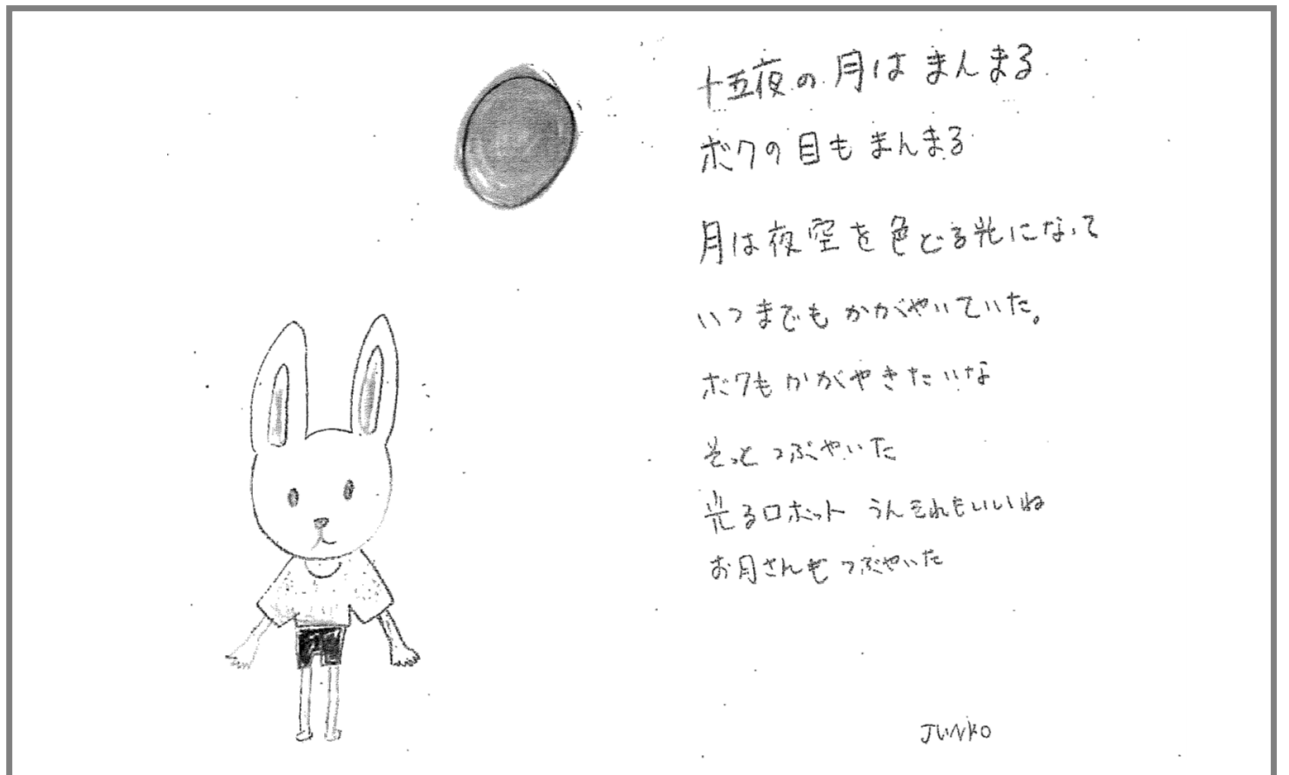 十五夜の月はまんまる
ボクの目もまんまる
月は夜空を色どる光になって
いつまでもかがやいていた。
ボクもかがやきたいな
そっとつぶやいた
光るロボット うんそれもいいね
お月さんもつぶやいた
JUNKO